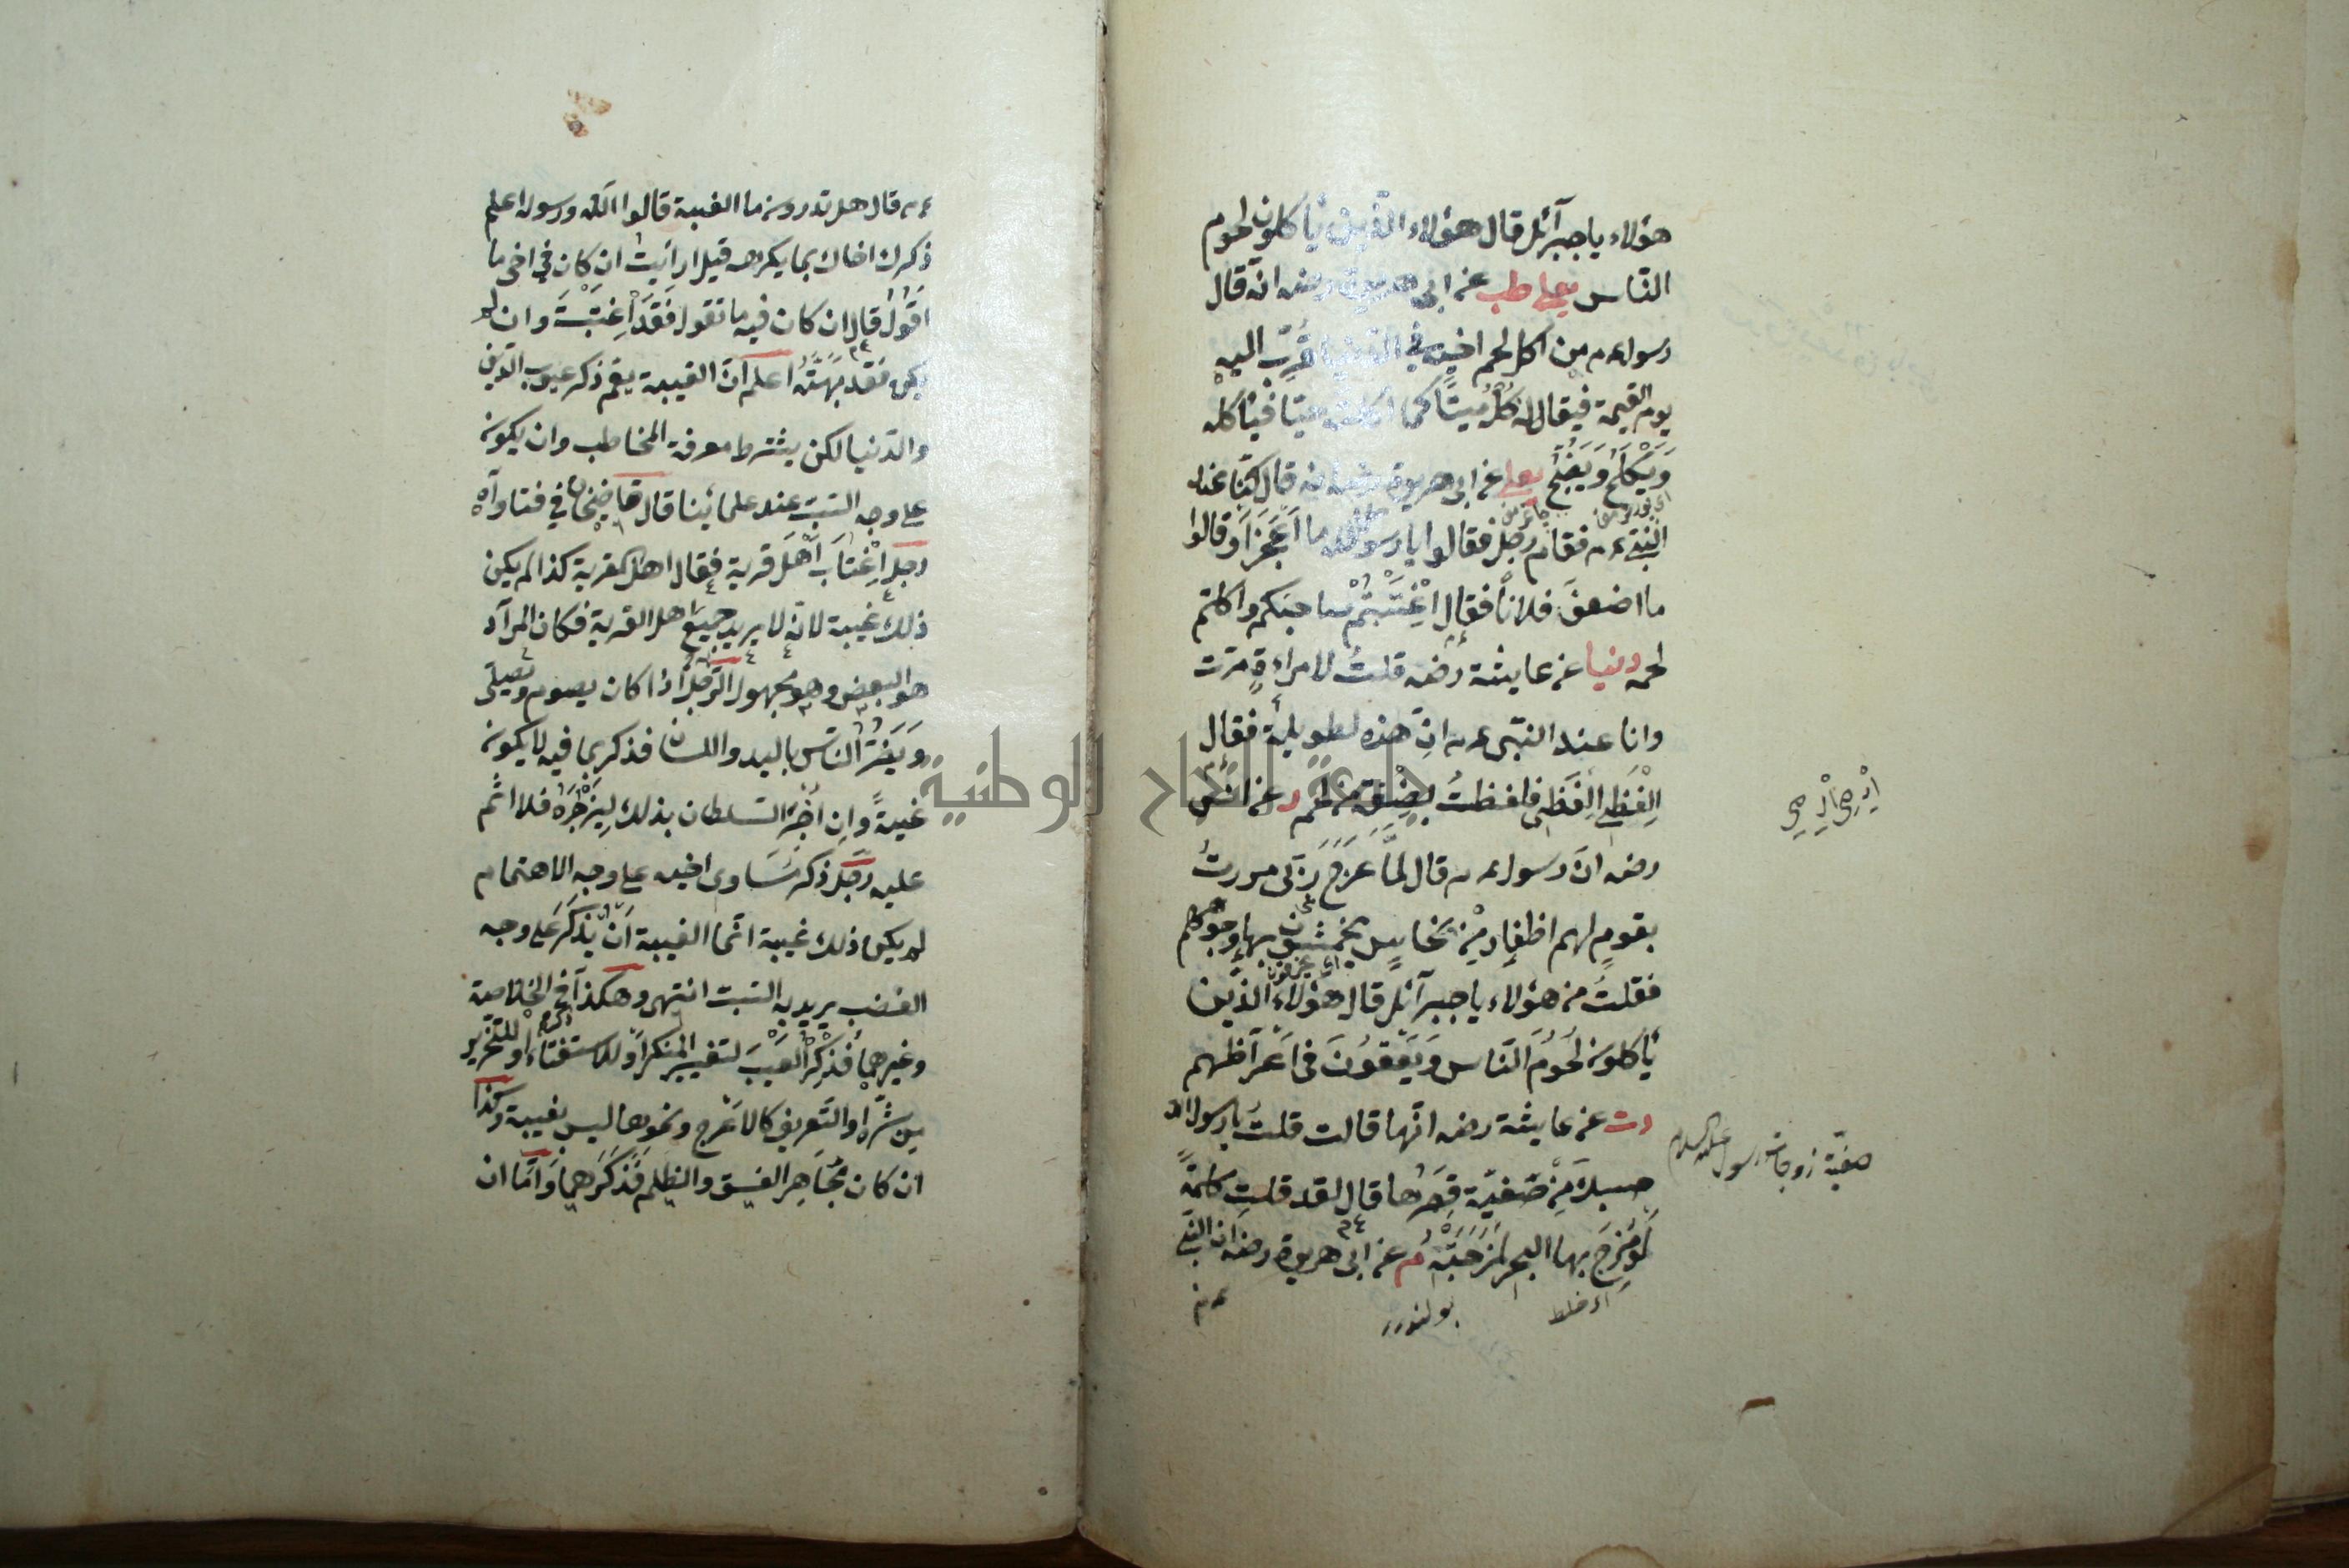 هؤلاء يا جبرآئل قال هؤلاء الّذين يأكلون لحوم
النّاس يعلى طب عن ابى هريرة رضه انّه قال
رسول عم من اكل لحم اخيه في الدنيا قُرِّبَ اليه
يوم القيمة فيقال له كُلْهُ ميتًا كما اكلته حيّا فيأكله
وَيَكْلَحُ وَيَضِجُّ يعلى عن ابى هريرة رضه انه قال كنّا عند
النبىّ عم فقام رجل فقالوا يا رسول الله ما اَعْجَزَ اَوْ قالوا
ما اضعفَ فلاناً فقال اِغْتَبْتُمْ صاحبكم واكلتم
لحمه دنيا عن عايشة رضه قلتُ لامراءةٍ مرّت
وانا عند النبّى عم انّ هذه لطويلة فقال
اِلْفَظِى اِلْفَظِى فلفظتُ بضعة من لحم د عن انس
رضه انّ رسول عم قال لمّا عَرَجَ رَبّى مررتُ
بقومٍ لهم اظفار من نحاسٍ يخمشون بها وجوههم
فقلتُ من هؤلاء يا جبرآئل قال هؤلاء الّذين
يأكلون لُحُومَ النّاس وَيَقَعُونَ فى اَعْرَاضهم
دت عن عايشة رضه انّها قالت قلتُ يا رسول الله
حسبك مِنْ صَفيّة قِصَرُها قال لقد قلتِ كلمةً
لَوْ مُزِجَ بها البحر لَمَزَجَتْه م عن ابى هريرة رضه ان النبىّ
اى خلط
عم
صفيّة زوجات رسول عليه السلام
عم قال هل تدرون ما الغيبة قالوا الله ورسوله اعلم
ذكرك اخاك بما يكره قيل ارأيت ان كان في اخى ما
اَقُولُ قال ان كان فيه ما تقول فَقَدْ اِغْتَبْتَهُ وان لم
يكن فقد بَهَتَّهُ اعلم انّ الغيبة يعم ذكر عيوب الدّين
والدّنيا لكن يشترط معرفة المخاطب وان يكون
على وجه السّبّ عند علمائنا قال قاضيخان في فتاواه
رجل اِغْتَابَ اَهْلَ قرية فقال اهل القرية كذا لم يكن
ذلك غيبة لانّه لا يريد جميع اهل القرية فكان المرآد
هو البعض وهو مجهول الرّجل اذا كان يصوم ويصلّى
وَيَضُرُّ النّاس باليد واللسان فذكر بما فيه لا يكون
غيبةً وان اُخْبِرَ السّلطان بذلك لِيَزْجُرَهُ فلا اثم
عليه رجل ذكر مَسَاوى اخيه على وجه الاهتمام
لم يكن ذلك غيبة انّما الغيبة اَنْ يَذْكُرَ على وجه
الغضب يريد به السّبّ انتهى وهكذا في الخلاصة
وغيرهما فَذِكْرُ الْعَيْبِ لتغيير المنكر اَوْ للاستفتاء او للتّحذير
من شرّه او التّعريف كالاَعْرج ونحوها ليس بغيبة وكذا
ان كان مُجَاهِرَ الفسق والظلم فَذَكَرَهما وَاَمَّا ان
جامعة النجاح الوطنية